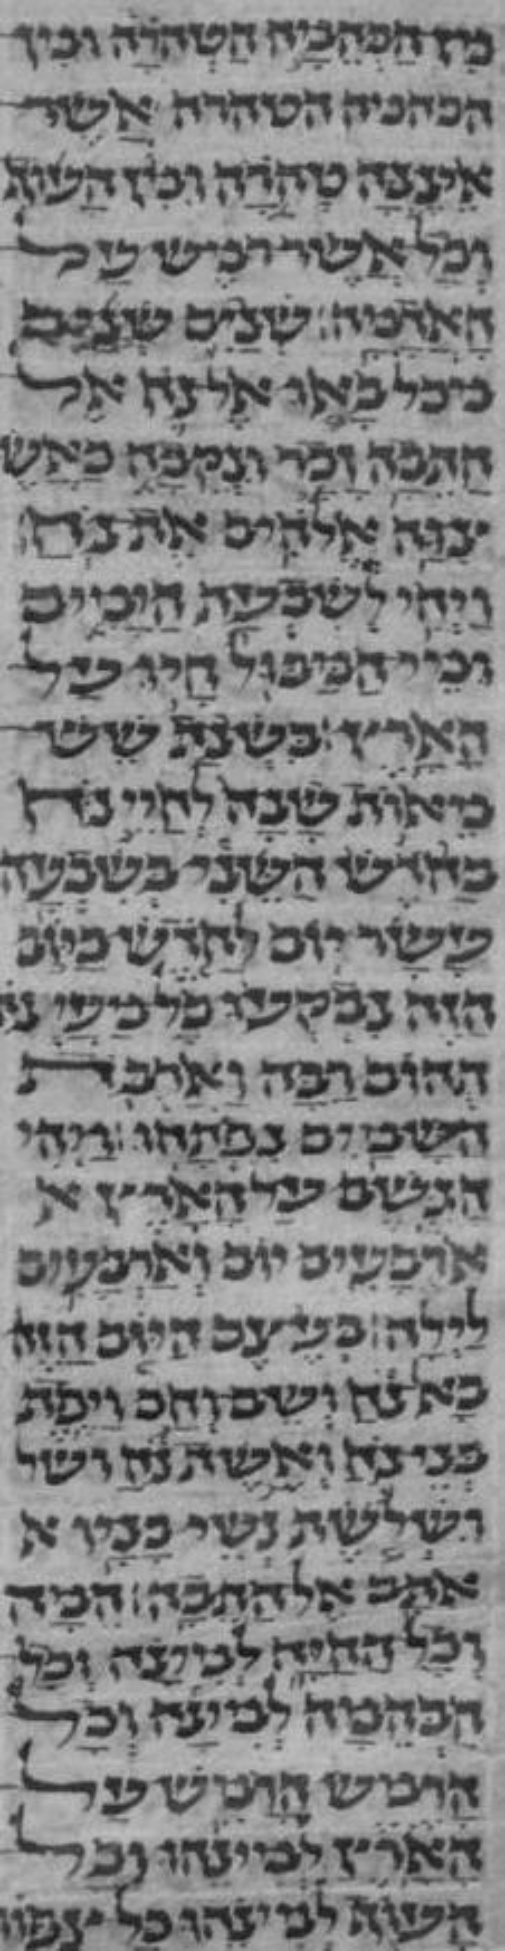 מן הבהמה הטהרה ומן
הבהמה הטהרה אשר
איננה טהרה ומן העוף
וכל אשר רמש על
האדמה: שנים שנים
באו אל נח אל
התבה זכר ונקבה כאש
צוה אלהים את נח:
ויהי לשבעת הימים
ומי המבול היו על
הארץ: בשנת שש
מאות שנה לחיי נח
בחדש השני בשבעה
עשר יום לחדש ביום
הזה נבקעו כל מעינ
תהום רבה וארבת
השמים נפתחו: ויהי
הגשם על הארץ א
ארבעים יום וארבעים
לילה: בעצם היום הזה
בא נח ושם וחם ויפת
בני נח ואשת נח ושל
ושלשת נשי בניו א
אתם אל התבה: המה
וכל החיה למינה וכל
הבהמה למינה וכל
הרמש הרמש על
הארץ למינהו וכל
העוף למינהו כל צפור